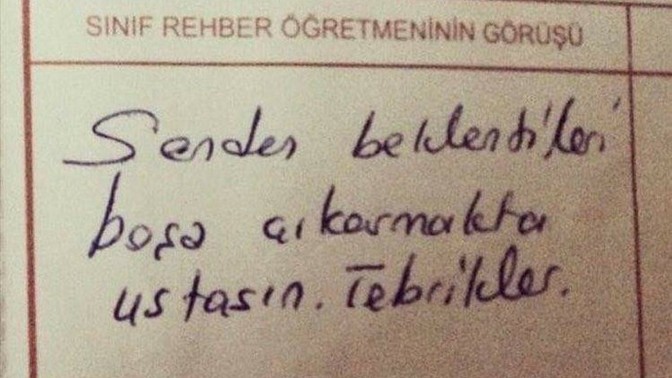 SINIF REHBER ÖĞRETMENİNİN GÖRÜŞÜ
Senden beklentileri
boşa çıkarmakta
ustasın. Tebrikler.